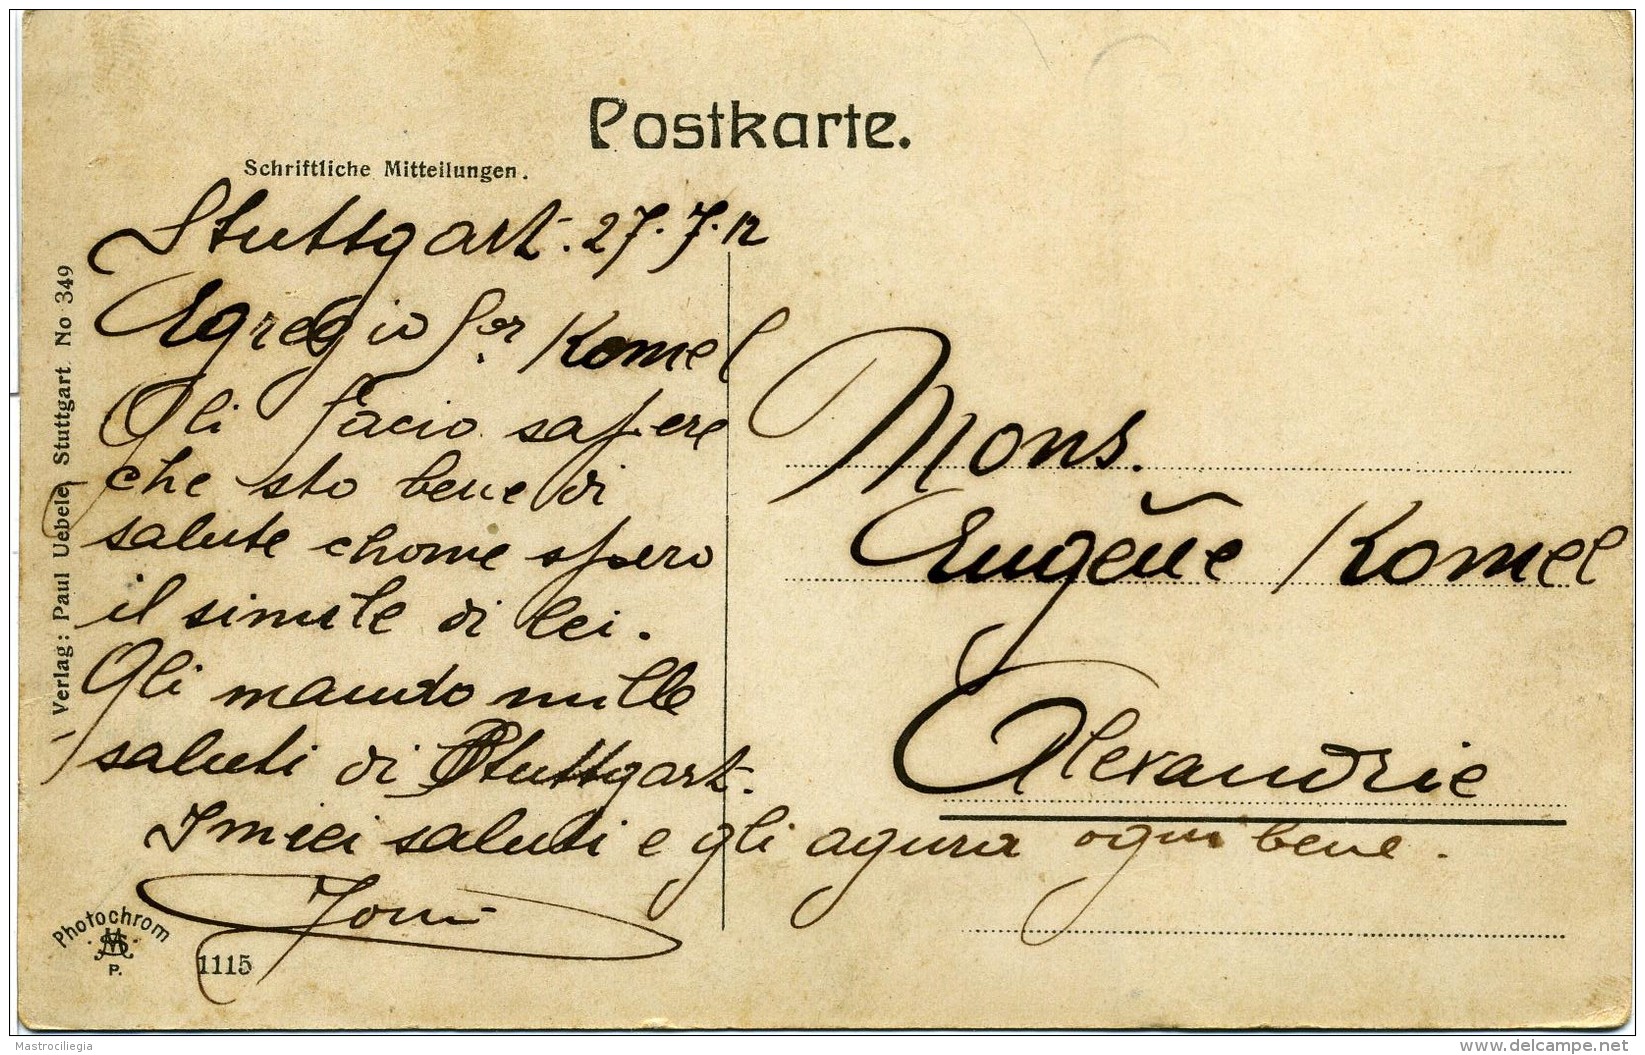 Postkarte.
Schriftliche Mitteilungen.
Stuttgart. 27.7.12
Egregio Ser. Komel
Gli facio sapere
che sto bene di
salute chome spero
il simile di lei.
Gli mando mille
saluti di Stuttgart.
I miei saluti e gli agura ogni bene.
Mons.
Eugène Komel
Alexandrie
Verlag: Paul Uebele, Stuttgart. No 349
Photochrom
P.
1115
Mastrociliegia
www.delcampe.net